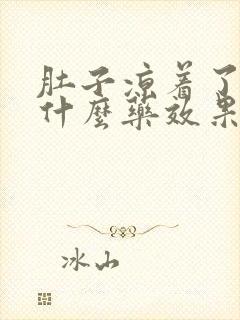 肚子凉着了
什麼藥效果
冰山